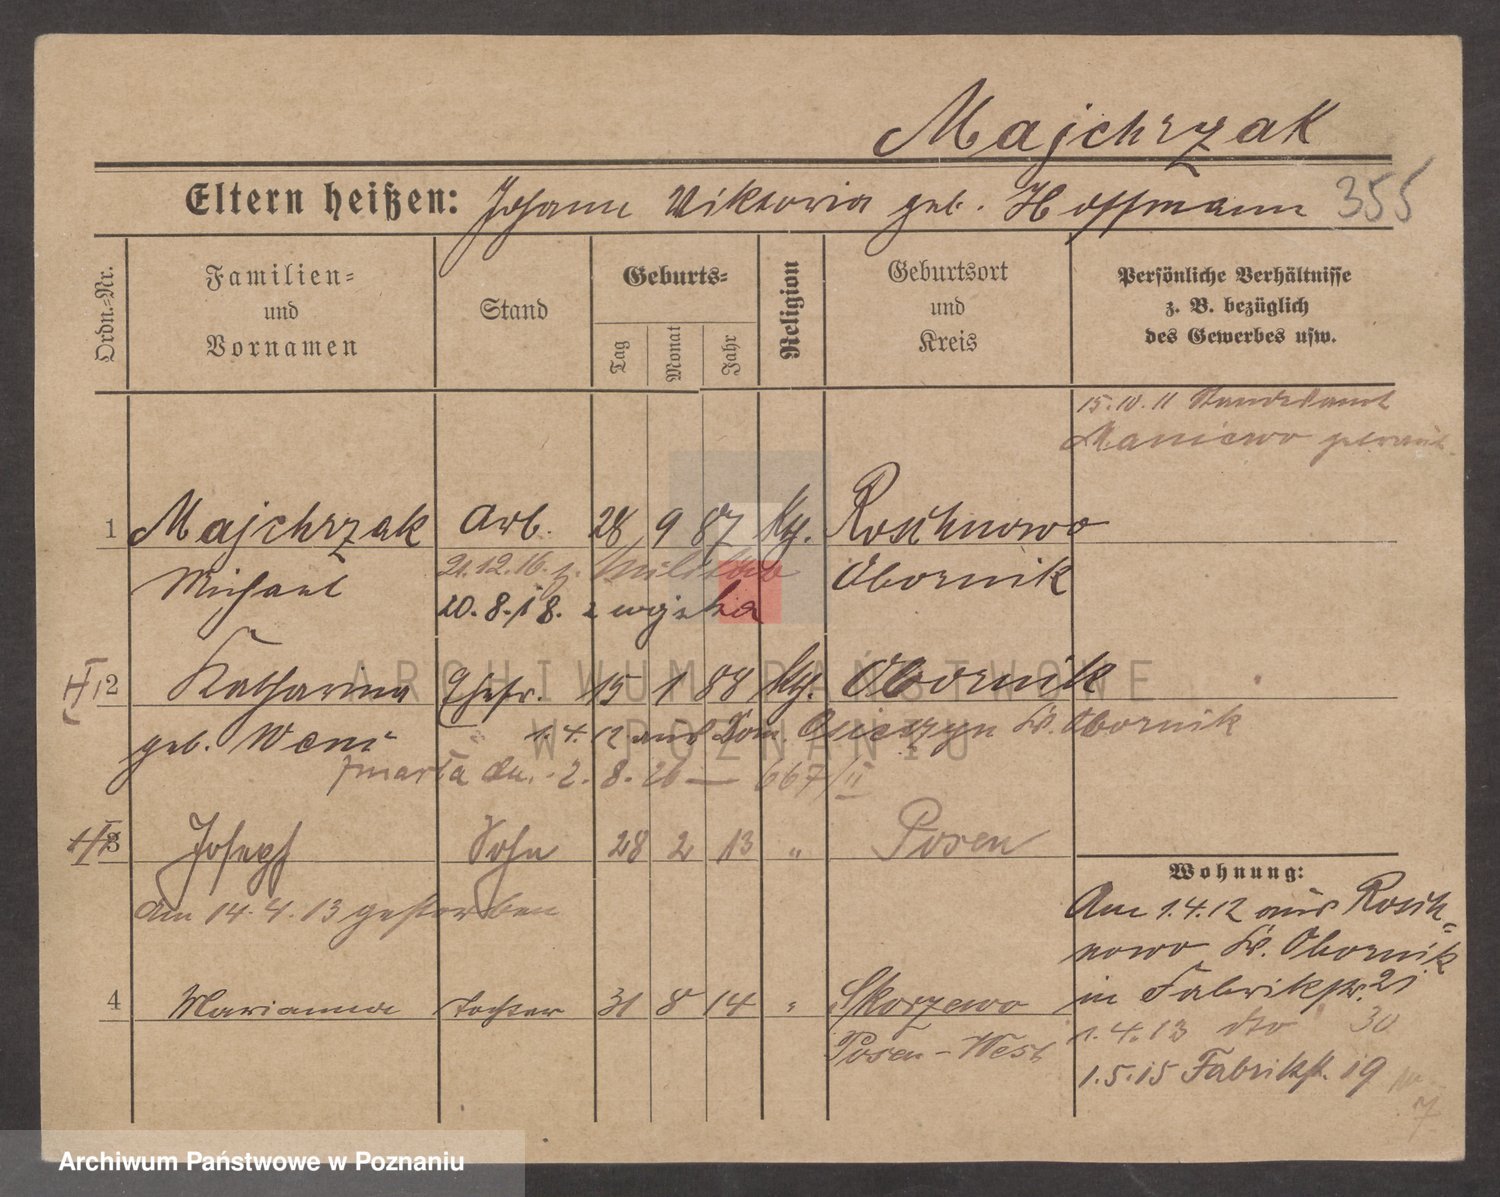 Majchrzak
Eltern heißen: Johann Viktoria geb. Hoffmann 355
Ordn.-Nr.
Familien-
und
Vornamen
Stand
Geburts-
Tag
Monat
Jahr
Religion
Geburtsort
und
Kreis
Persönliche Verhältnisse
z. B. bezüglich
des Gewerbes usw.
15.10.11 Standesamt
Maniewo getraut
1 Majchrzak Arb. 28 9 87 Kg. Roschnowo
Michael Obornik
21.12.16. z. Militär
20.8.18. z wojska
2 Katharina Ehefr. 15 1 88 Kg. Obornik
geb. 1.4.12 aus Dom. Kr. Obornik
zmarła dn. 2.8.26 — 667/II
3 Joseph Sohn 28 2 13 " Posen
Am 14.4.13 gestorben
4 Marianna Tochter 31 8 14 " Skorzewo
Posen-West
Wohnung:
Am 1.4.12 aus Rosch-
nowo Kr. Obornik
in Fabrikstr. 21
1.4.13 dto 30
1.5.15 Fabrikst. 19
7
ARCHIWUM PAŃSTWOWE
W POZNANIU
Archiwum Państwowe w Poznaniu